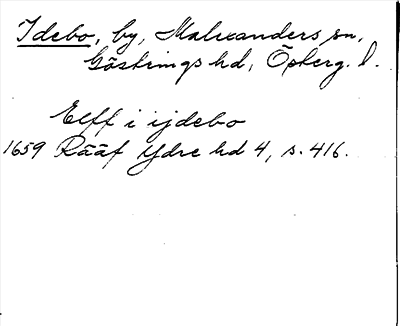 Idebo, by, Malexanders sn,
Göstrings hd, Österg. l.
Elff i ijdebo
1659 Rääf Ydre hd 4, s. 416.